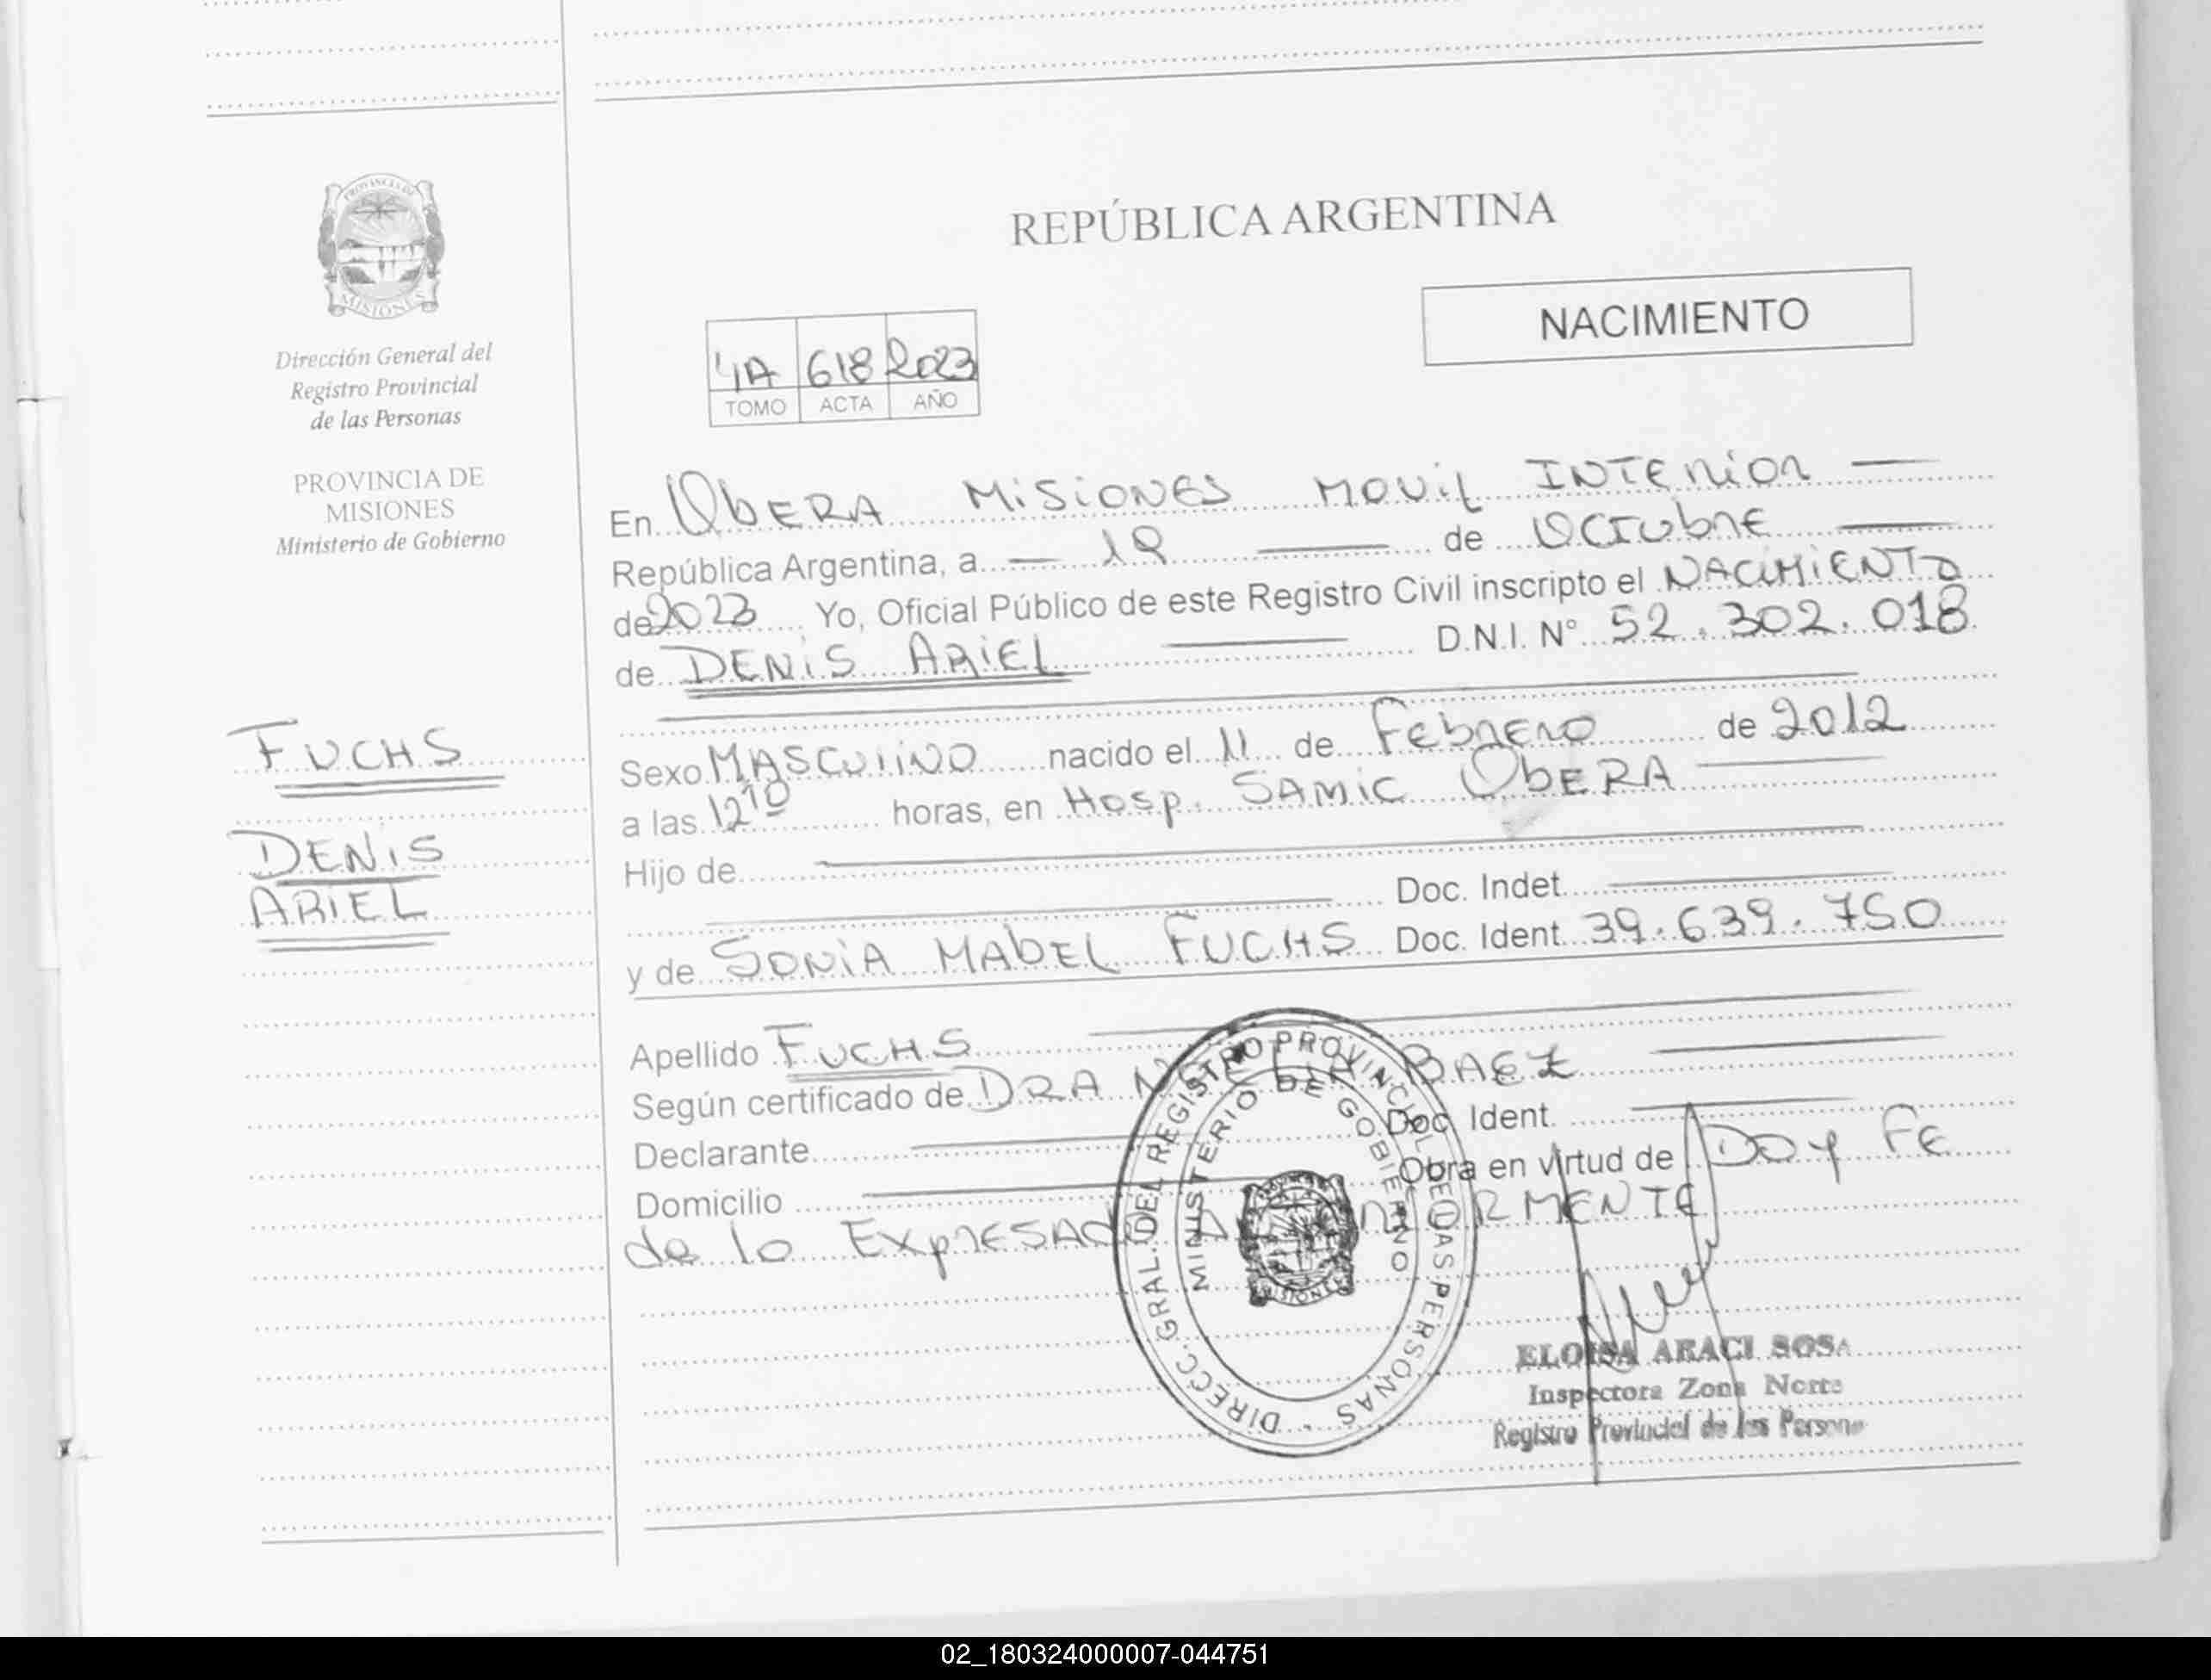 PROVINCIA DE
MISIONES
Dirección General del
Registro Provincial
de las Personas
PROVINCIA DE
MISIONES
Ministerio de Gobierno
FUCHS
DENIS
ARIEL
REPÚBLICA ARGENTINA
NACIMIENTO
4A 618 2023
TOMO ACTA AÑO
En OBERA MISIONES MOVIL INTERIOR
República Argentina, a de OCTUBRE
de 2023 Yo, Oficial Público de este Registro Civil inscripto el NACIMIENTO
de DENIS ARIEL D.N.I. N° 52.302.018
Sexo MASCULINO nacido el 11 de FEBRERO de 2012
a las 12 10 horas, en HOSP. SAMIC OBERA
Hijo de
Doc. Indet.
y de SONIA MABEL FUCHS Doc. Ident. 39.639.750
Apellido FUCHS
Según certificado de DRA BAEZ
Declarante Doc. Ident.
Domicilio Obra en virtud de DOY FE
de lo EXPRESADO ANTERIORMENTE
DIRECC. GRAL. DEL REGISTRO PROVINCIAL DE LAS PERSONAS
MINISTERIO DE GOBIERNO
MISIONES
ELOISA ARACI SOSA
Inspectora Zona Norte
Registro Provincial de las Persona
02_180324000007-044751